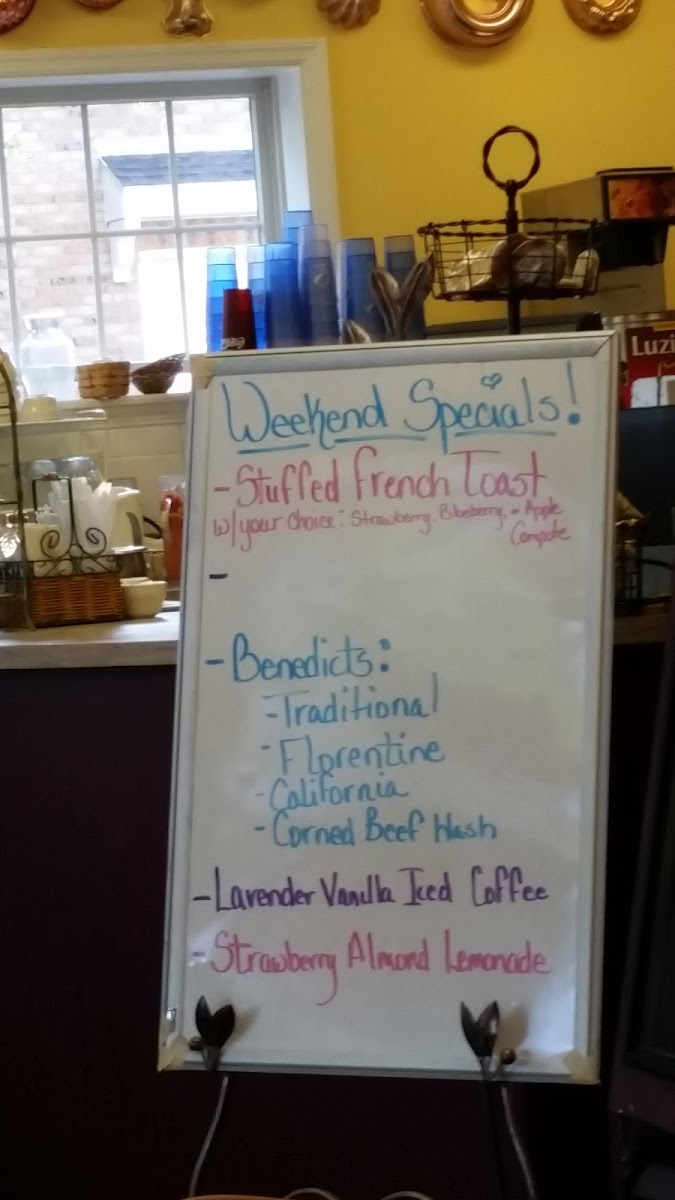 Weekend Specials!
- Stuffed French Toast
w/your choice: Strawberry, Blueberry, or Apple
Compote
-
- Benedicts:
- Traditional
- Florentine
- California
- Corned Beef Hash
- Lavender Vanilla Iced Coffee
- Strawberry Almond Lemonade
Luzi